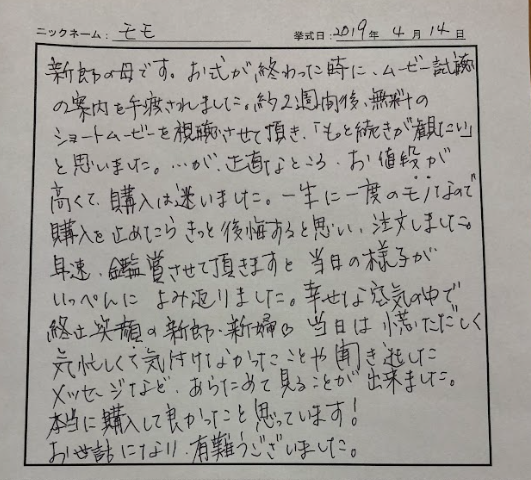 ニックネーム: モモ 挙式日: 2019年 4月 14日
新郎の母です。お式が終わった時に、ムービー試聴
の案内を手渡されました。約2週間後、無料の
ショートムービーを視聴させて頂き、「もっと続きが観たい」
と思いました。…が、正直なところ、お値段が
高くて、購入は迷いました。一生に一度のモノなので
購入を止めたらきっと後悔すると思い、注文しました。
早速、鑑賞させて頂きますと当日の様子が
いっぺんによみ返りました。幸せな空気の中で
終止笑顔の新郎・新婦♡ 当日は慌ただしく
気忙しくて気付けなかったことや聞き逃した
メッセージなど、あらためて見ることが出来ました。
本当に購入して良かったと思っています!
お世話になり、有難うございました。